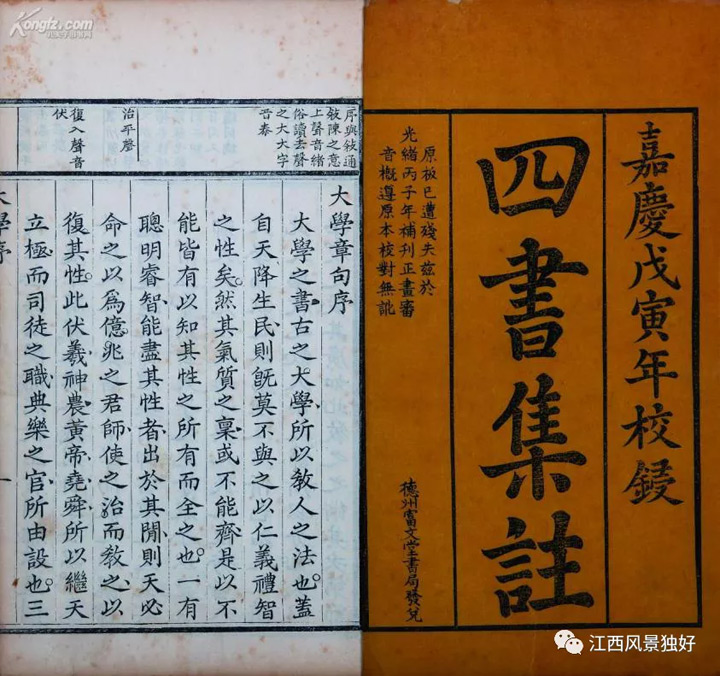 嘉慶戊寅年校鋟
四書集註
原板已遭殘失茲於
光緒丙子年補刊正畫審
音概遵原本校對無訛
德州富文堂書局發兌
序與敍通
敍陳之意
上聲音緒
俗讀去聲
之大大字
音泰
治平聲
復入聲音
伏
大學章句序
大學之書古之大學所以教人之法也蓋
自天降生民則旣莫不與之以仁義禮智
之性矣然其氣質之稟或不能齊是以不
能皆有以知其性之所有而全之也一有
聰明睿智能盡其性者出於其閒則天必
命之以爲億兆之君師使之治而教之以
復其性此伏羲神農黃帝堯舜所以繼天
立極而司徒之職典樂之官所由設也三
大學序
一
Kongfz.com
江西风景独好